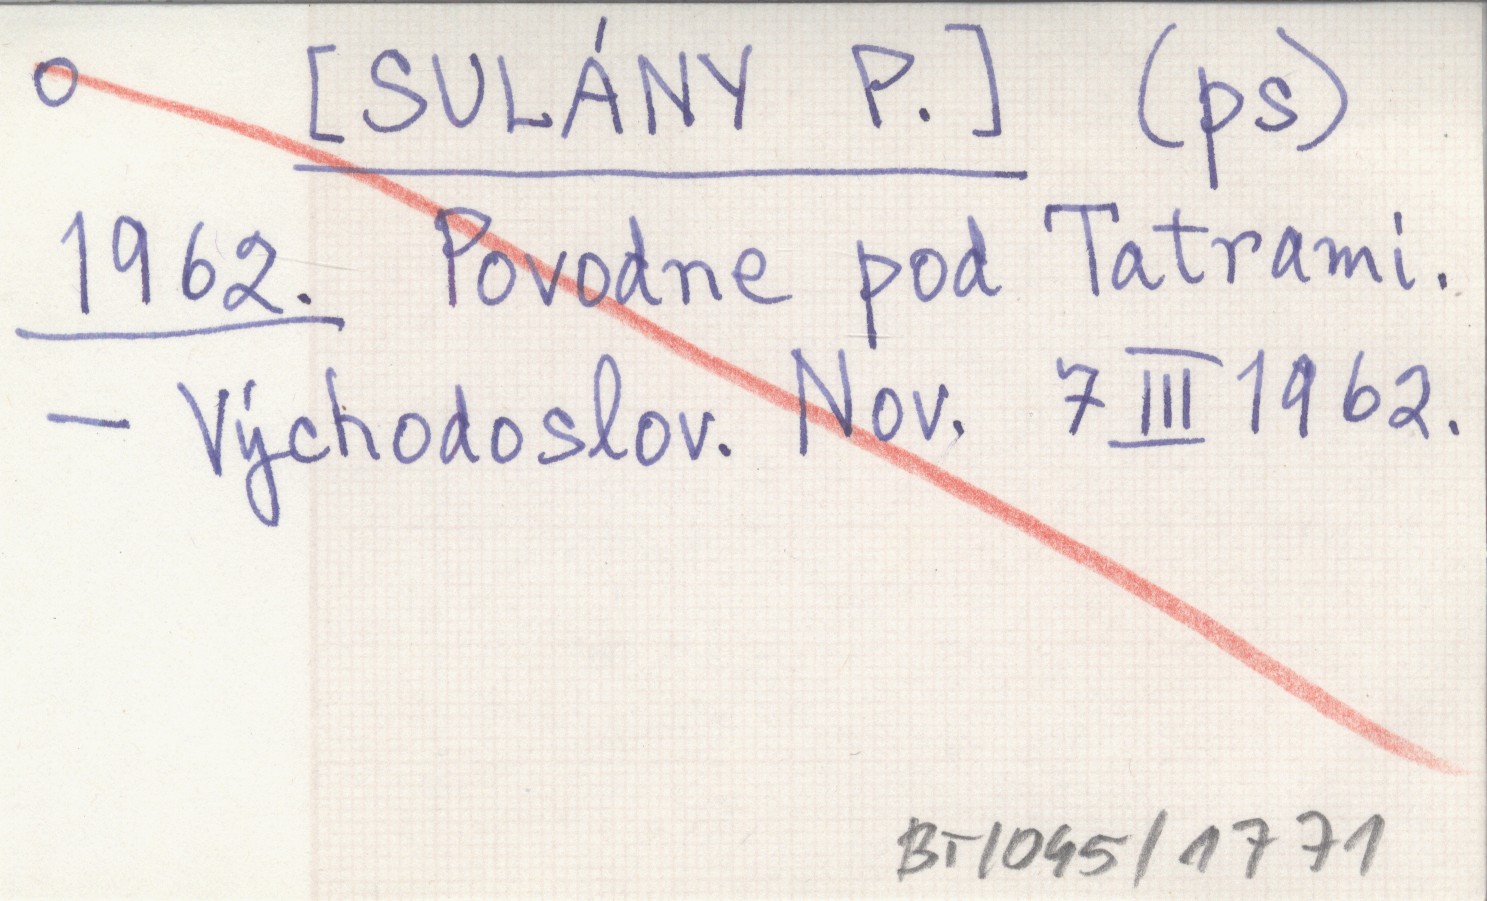 o [SULÁNY P.] (ps)
1962. Povodne pod Tatrami.
– Východoslov. Nov. 7 III 1962.
BT/045/1771